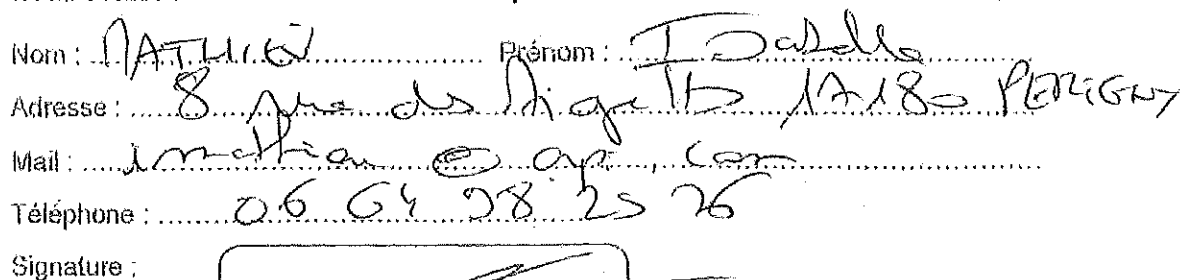 Nom : MATHIEU Prénom : Isabelle
Adresse : 8 rue des 17180 PERIGNY
Mail : imathieu @ .com
Téléphone : 06 64 98 25 26
Signature :